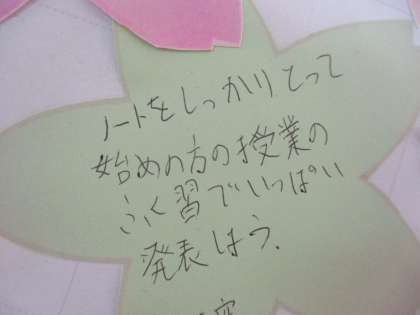 ノートをしっかりとって
始めの方の授業の
ふく習でいっぱい
発表しよう.